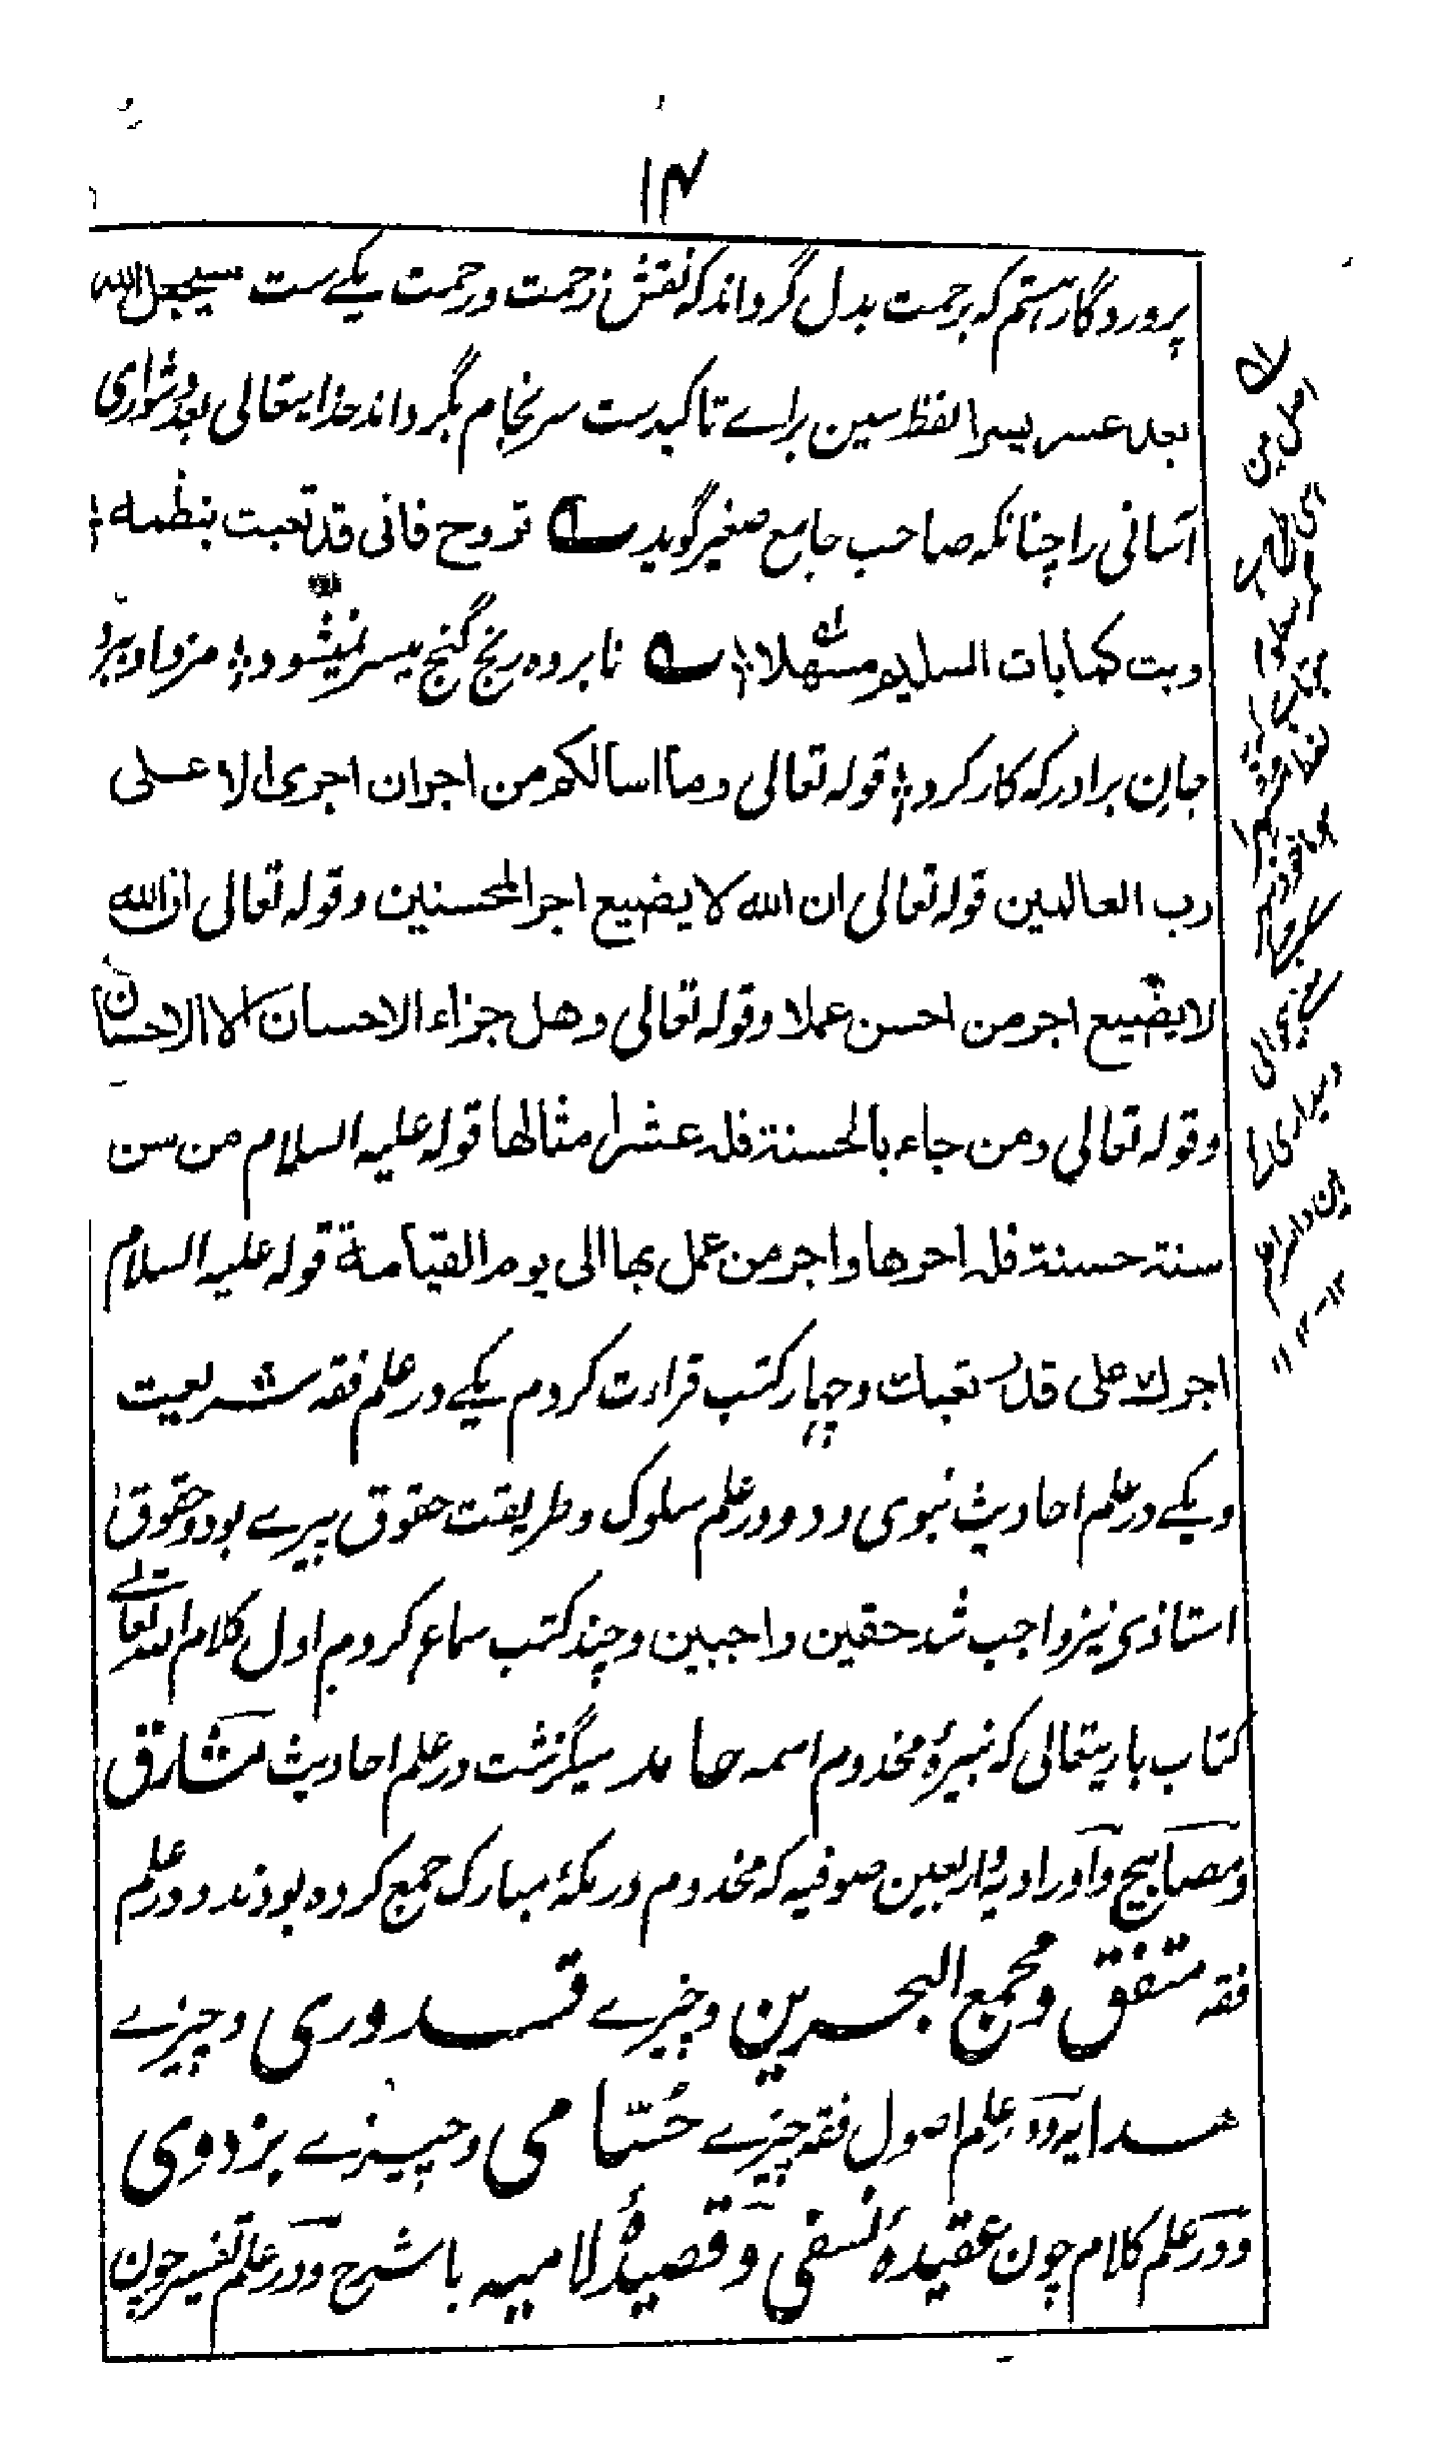 ۱۴
پروردگار هستم که برحمت بدل گرداند که نقش زحمت و رحمت یکے ست سیجعل الله
بعد عسر یسرا لفظ سین براے تاکیدست سرنجام بگرداند خدایتعالی بعد دشواری
آسانی را چنانکه صاحب جامع صغیر گوید ؎ تروح فانی قد تعبت بنظمه
وبت کمابات السلیم مسهلا ؎ نابرده رنج گنج میسر نمیشود ؛ مزد او برد
جان برادر که کار کرد ؛ قوله تعالی وما اسالکم من اجران اجری الا علی
رب العالمین قوله تعالی ان الله لا یضیع اجر المحسنین وقوله تعالی ان الله
لا یضیع اجر من احسن عملا وقوله تعالی وهل جزاء الاحسان الا الاحسان
وقوله تعالی ومن جاء بالحسنة فله عشر امثالها قوله علیه السلام من سن
سنة حسنة فله اجرها واجر من عمل بها الی یوم القیامة قوله علیه السلام
اجرك علی قدر تعبك وچهار کتب قراءت کردم یکے در علم فقه شریعت
ویکے در علم احادیث نبوی ودو در علم سلوک وطریقت حقوق پیرے بود وحقوق
استاذی نیز واجب شد حقین واجبین وچند کتب سماع کردم اول کلام الله تعالے
کتاب باریتعالی که نبیرهٔ مخدوم اسمه حامد میگزشت در علم احادیث مشارق
ومصابیح واوراد یه اربعین صوفیه که مخدوم در مکهٔ مبارک جمع کرده بودند ودر علم
فقه متفق ومجمع البحرین وچیزے قدوری وچیزے
هدایه ودر علم اصول فقه چیزے حسامی وچیزے بزدوی
ودر علم کلام چون عقیدهٔ نسفی وقصیدهٔ لامیه با شرح ودر علم تفسیر چون